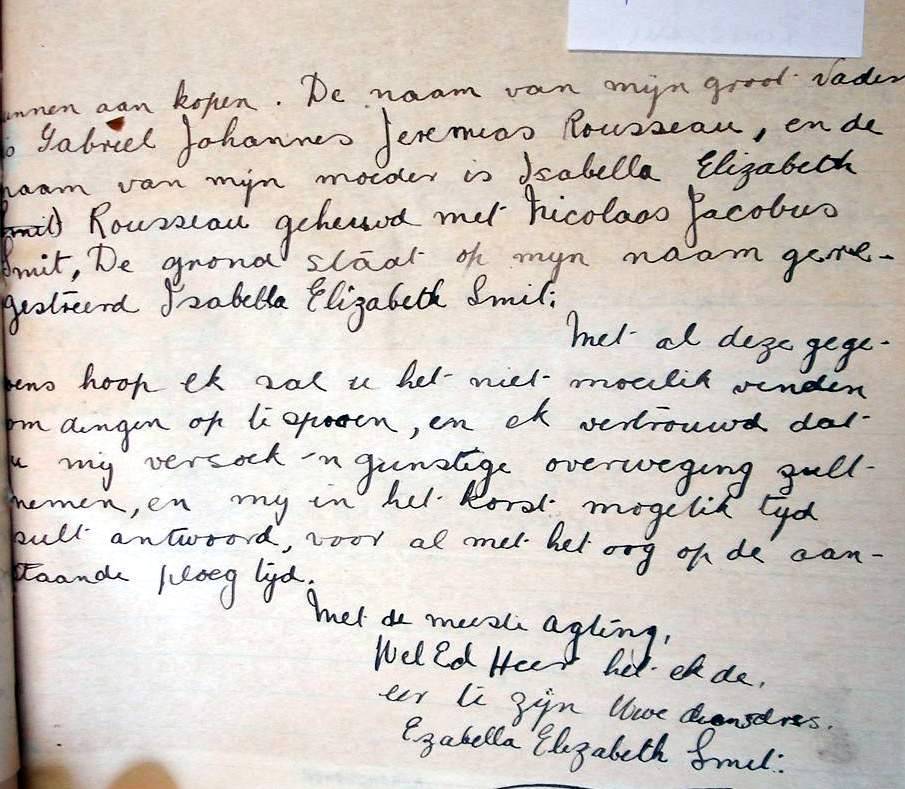 nnen aan kopen. De naam van mijn groot Vader
Gabriel Johannes Jeremias Rousseau, en de
naam van mijn moeder is Isabella Elizabeth
Smit) Rousseau geheuwd met Nicolaas Jacobus
Smit, De grond stāāt op mijn naam gere-
gestreerd Isabella Elizabeth Smit.
Met al deze gege-
vens hoop ek sal u het niet moeilik venden
om dingen op te spooren, en ek vertrouwd dat
u mij versoek 'n gunstige overweging zult
nemen, en mij in het korst mogelik tyd
sult antwoord, voor al met het oog op de aan-
staande ploeg tijd.
Met de meeste agting,
Wel Ed Heer het ek de
eer te zijn Uwe dienseres.
Ezabella Elizabeth Smit.